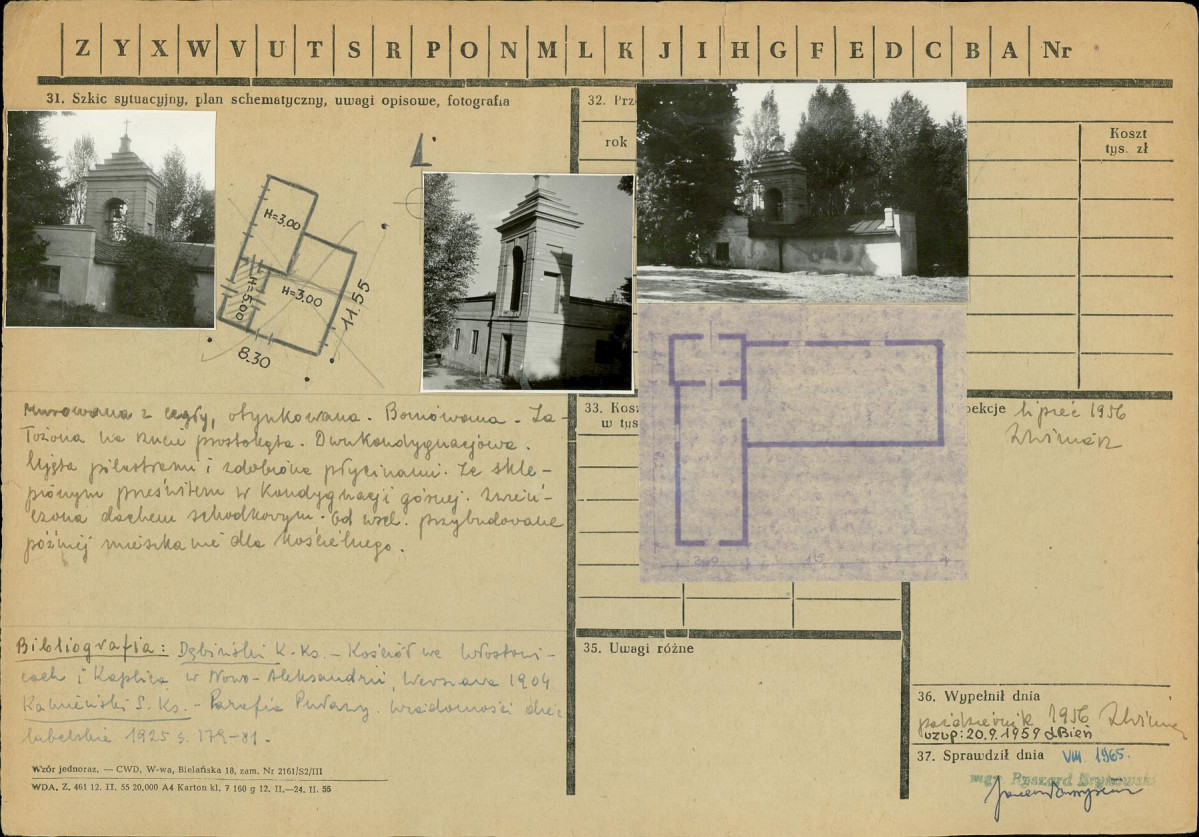 Z Y X W V U T S R P O N M L K J I H G F E D C B A Nr
31. Szkic sytuacyjny, plan schematyczny, uwagi opisowe, fotografia
H=3,00
H=5,00
H=3,00
11.55
8.30
Murowana z cegły, otynkowana. Boniowana. Za-
łożona na rzucie prostokąta. Dwukondygnacjowa.
Ujęta pilastrami i zdobiona płycinami. Ze skle-
pionym prześwitem w kondygnacji górnej. Zwień-
czona dachem schodkowym. Od wsch. przybudowane
później mieszkanie dla kościelnego.
Bibliografia: Dębiński K. Ks. – Kościół we Włostowi-
cach i Kaplica w Nowo-Aleksandrii, Warszawa 1904
Kamieński S. Ks. – Parafia Puławy. Wiadomości diec.
lubelskie 1925 s. 179–81.
Wzór jednoraz. — CWD, W-wa, Bielańska 18, zam. Nr 2161/S2/III
WDA. Z. 461 12. II. 55 20,000 A4 Karton kl. 7 160 g 12. II.—24. II. 55
32.
rok
Koszt
tys. zł
33.
w tys
lipiec 1956
35. Uwagi różne
36. Wypełnił dnia
październik 1956
uzup: 20.9.1959 J.Bień
37. Sprawdził dnia VIII 1965.
mgr. Ryszard Brykowski